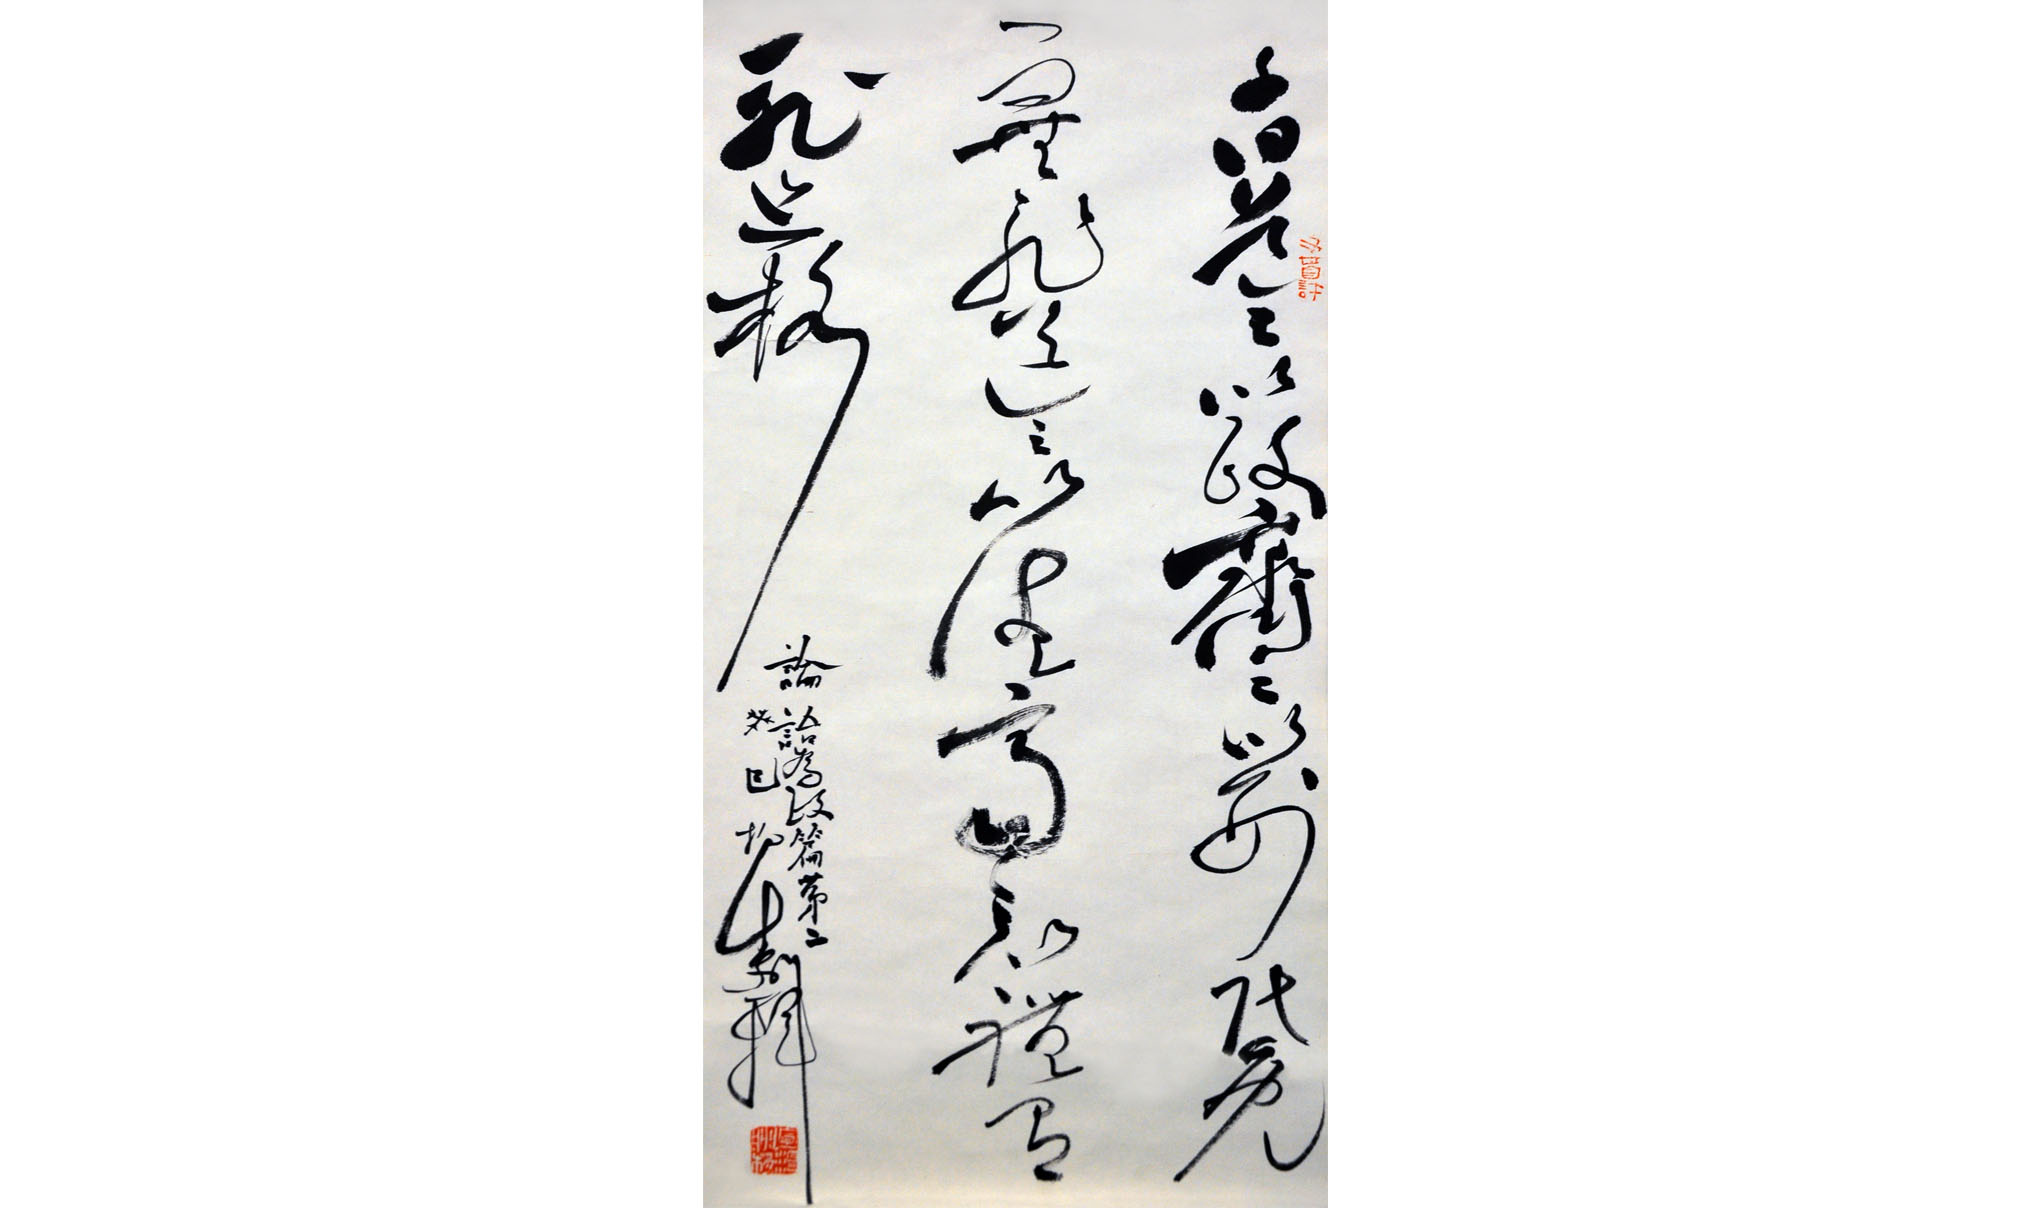 子曰道之以政齊之以刑民免
而無恥道之以德齊之以禮有
恥且格
論語為政篇第二
癸巳